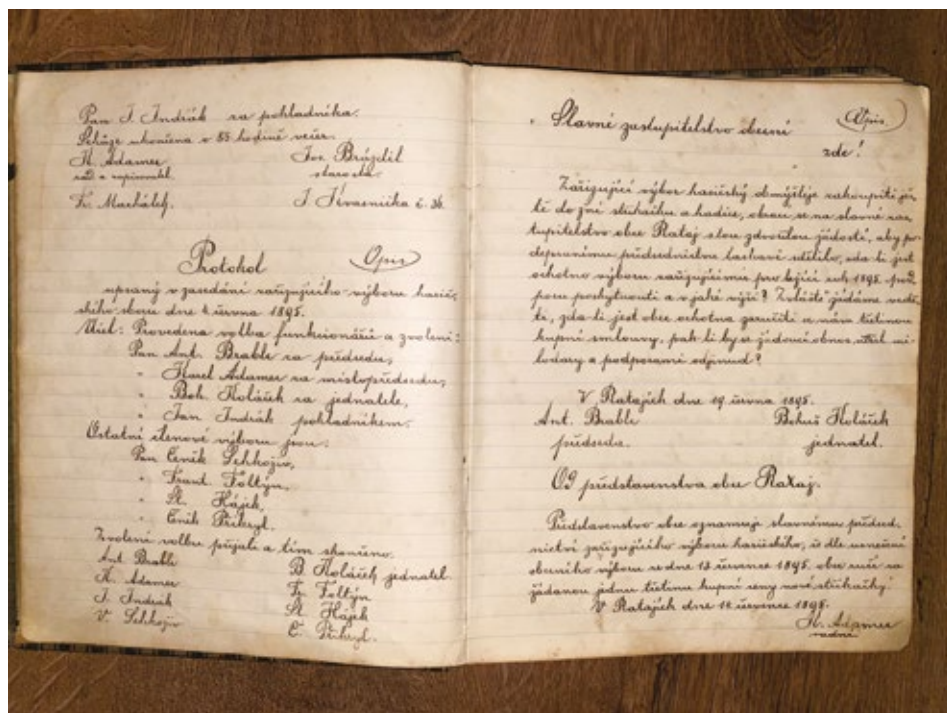 Pan J. Indrák za pokladníka.
Schůze ukončena o 8½ hodině večer.
K. Adamec
Jos. Brázdil
rad. a zapisovatel.
starosta.
Fr. Macháleh.
J. Kvasnička č. 36.
Protokol
Opis
upsaný v zasedání zařizujícího výboru hasič-
ského sboru dne 4. června 1895.
Účel: Provedena volba funkcionářů a zvoleni:
Pan Ant. Brable za předsedu,
" Karel Adamec za místopředsedu,
" Boh. Koláček za jednatele,
" Jan Indrák pokladníkem.
Ostatní členové výboru jsou:
Pan Čeněk
" Frant. Foltýn,
" St. Hájek,
" Čeněk Přikryl.
Zvolení volbu přijali a tím skončeno.
Ant. Brable
B. Koláček jednatel.
K. Adamec
Fr. Foltýn
J. Indrák
St. Hájek
V.
Č. Přikryl.
Slavné zastupitelstvo obecní
Opis
zde!
Zařizující výbor hasičský obmýšlí zakoupiti ješ-
tě do žní stříkačku a hadice, obrací se na slavné zas-
tupitelstvo obce Rataj stou zdvořilou žádostí, aby po-
depsanému předsednictvu laskavě sdělilo, zda-li jest
ochotno výboru zařizujícímu pro
rok 1895 pod-
poru poskytnouti a v jaké výši? Zvláště žádáme vědě-
ti, zda-li jest obec ochotna zaručiti a nám třetinou
kupní smlouvy, pak-li by se žádoucí obnos
mi-
lodary a podporami odjinud?
V Ratajích dne 19. června 1895.
Ant. Brable
Bohuš Koláček
předseda.
jednatel.
Od představenstva obce Rataj.
Představenstvo obce oznamuje slavnému předsed-
nictví zařizujícího výboru hasičského, že dle usnešení
obecního výboru ze dne 13. července 1895. obec ručí za
žádanou jednu třetinu kupní ceny nové stříkačky.
V Ratajích dne 14. července 1895.
K. Adamec
radní